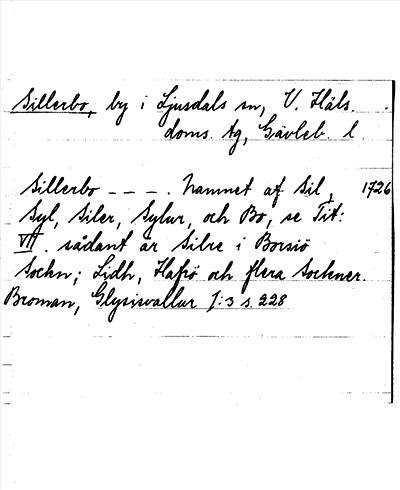 Sillerbo, by i Ljusdals sn, V. Häls.
doms. tg, Gävleb. l
Sillerbo - - - . Namnet af Sil, 1726
Syl, Siler, Sylur, och Bo, se Tit:
VII. sådant är Silre i Borsiö
Sockn; Lidh, Hafrö och flera Sockner.
Broman, Glysisvallur 1:3 s. 228